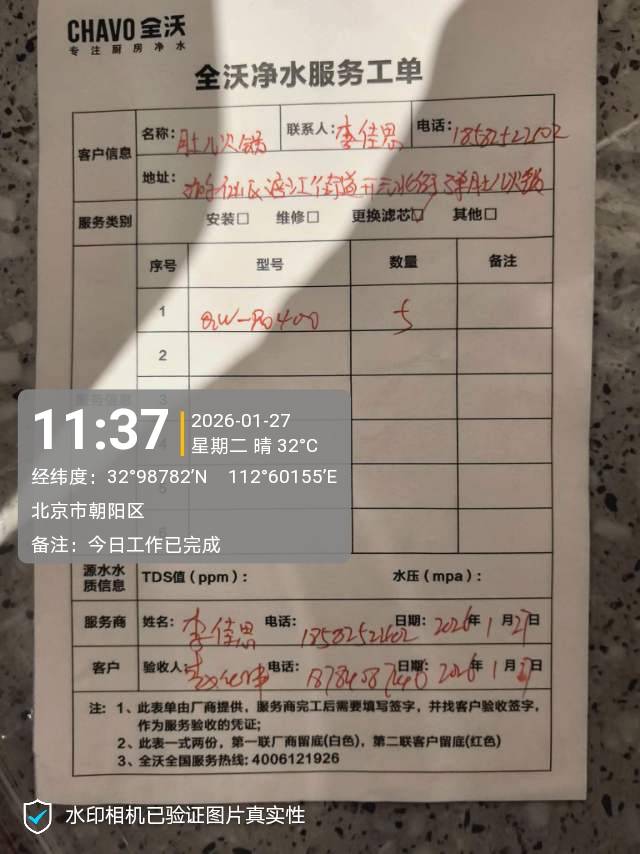 CHAVO 全沃
专注厨房净水
全沃净水服务工单
客户信息
名称：肚儿火锅 联系人：李佳恩 电话：
地址：
服务类别 安装□ 维修□ 更换滤芯☑ 其他□
序号 型号 数量 备注
1 5
2
3
11:37
2026-01-27
星期二 晴 32°C
经纬度：32°98782′N 112°60155′E
北京市朝阳区
备注：今日工作已完成
源水水质信息 TDS值（ppm）： 水压（mpa）：
服务商 姓名：李佳恩 电话：18582521602 日期：2026年1月27日
客户 验收人： 电话： 日期：2026年1月27日
注：1、此表单由厂商提供，服务商完工后需要填写签字，并找客户验收签字，
作为服务验收的凭证;
2、此表一式两份，第一联厂商留底(白色)，第二联客户留底(红色)
3、全沃全国服务热线: 4006121926
水印相机已验证图片真实性